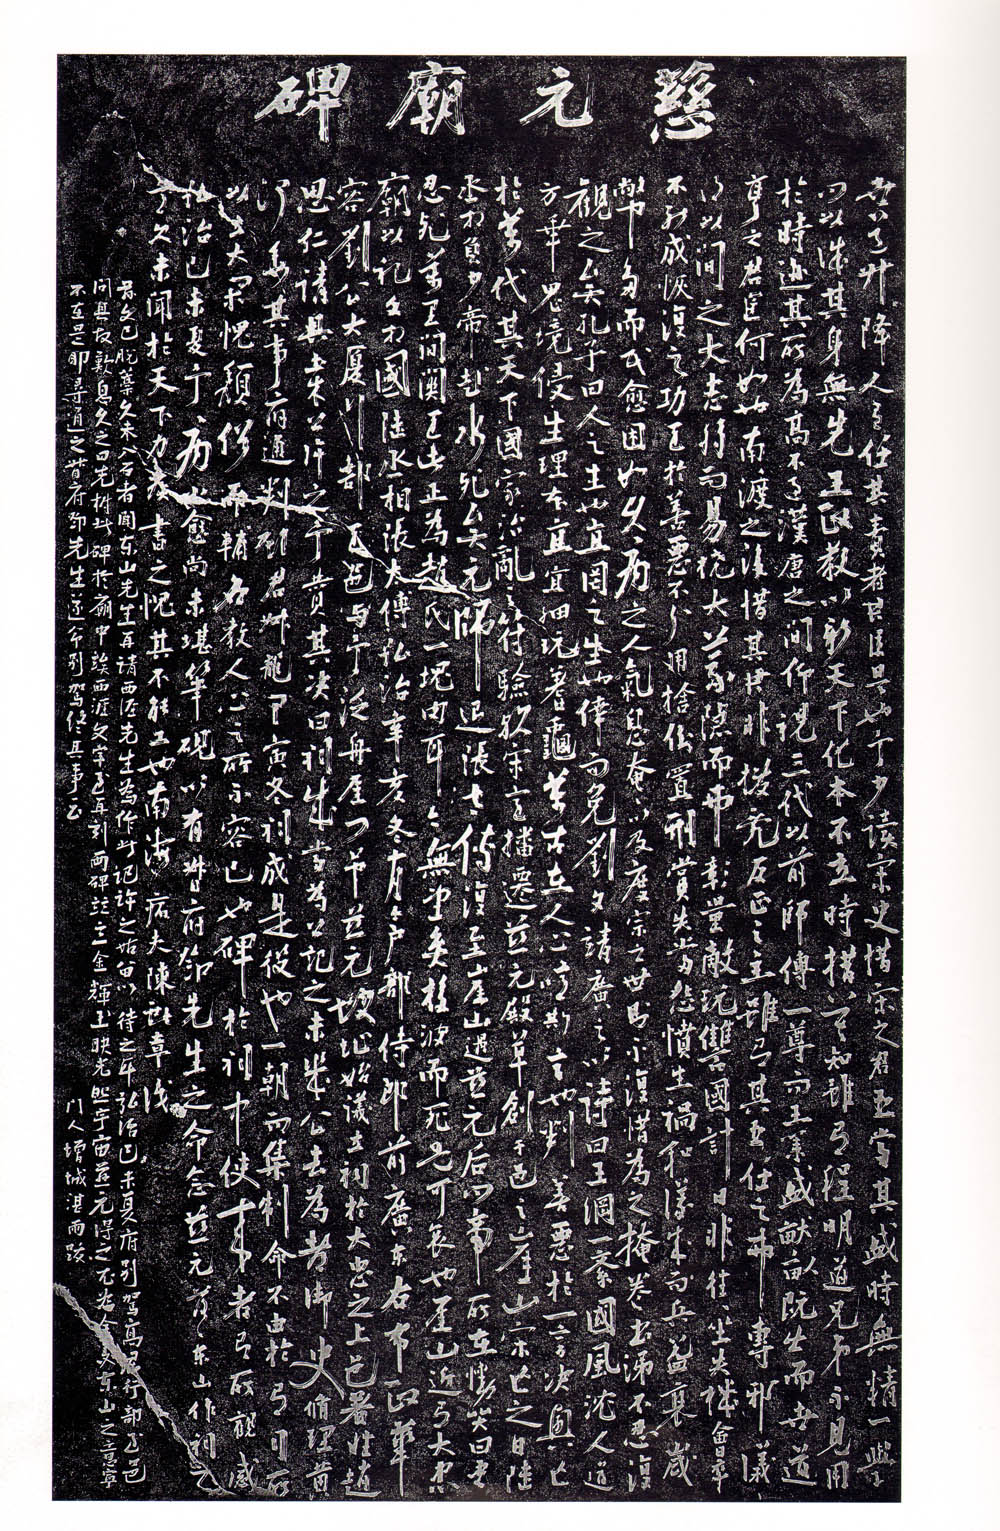 慈元廟碑
世道升降人有任其責者君臣是也予少讀宋史惜宋之君臣當其盛時無精一學
問以誠其身無先王政教以新天下化本不立時措莫知雖有程明道兄弟不見用
於時迹其所為高不過漢唐之間仰視三代以前師傅一尊而王業盛畎畝既出而世道
亨之君臣何如也南渡之後惜其君非撥亂反正之主雖有其臣任之弗專邪議
得以間之大志弗立而易撓大義弗隱而弗彰量敵玩讎國計日非往往坐失機會卒
不能成恢復之功至於善惡不分用捨倒置刑賞失當怨憤生禍和議成而兵益衰歲
幣多而民愈困如久病之人氣息奄奄以及度宗之世則不復惜為之掩卷出涕不忍復
觀之矣孔子曰人之生也直罔之生也倖而免劉文靖廣之以詩曰王綱一紊國風沈人道
方乖鬼境侵生理本直宜細玩蓍龜萬古在人心噫斯言也判善惡於一言決興亡
於萬代其天下國家治亂之符驗歟宋室播遷慈元殿草創于邑之崖山宋亡之日陸
丞相負少帝赴水死矣元師退張太傅復至崖山遇慈元后問帝所在慟哭曰吾
忍死萬里間關至此正為趙氏一塊肉耳今無望矣投波而死是可哀也崖山近有大忠
廟以祀文相國陸丞相張太傅弘治辛亥冬十月戶部侍郎前廣東右布政華
容劉公大夏行部至邑與予泛舟崖門吊慈元故址始議立祠於大忠之上邑著姓趙
思仁請具土木公許之予贊其決曰祠成當為公記之未幾公去為都御史脩理黃
河委其事府通判顧君叔龍甲寅冬祠成是役也一朝而集制命不由於有司所
以立大閑愧頹俗而輔名教人心之所不容已也碑於祠中使來者有所觀感
弘治己未夏予病小愈尚未堪筆硯以有督府鄧先生之命念慈元落落東山作祠之
意久未聞於天下力疾書之愧其不能工也南海病夫陳獻章識
前文已脫藁久未入石者聞東山先生再請西涯先生為作此記許之姑留以待之耳弘治己未夏府別駕高君行部至邑
問其故歎息久之曰先樹此碑於廟中俟西涯文字至再刻兩碑竝立金輝玉映光照宇宙慈元得之不益全乎東山之意寧
不在是耶尋通之督府鄧先生遂命別駕終其事云 門人增城湛雨跋